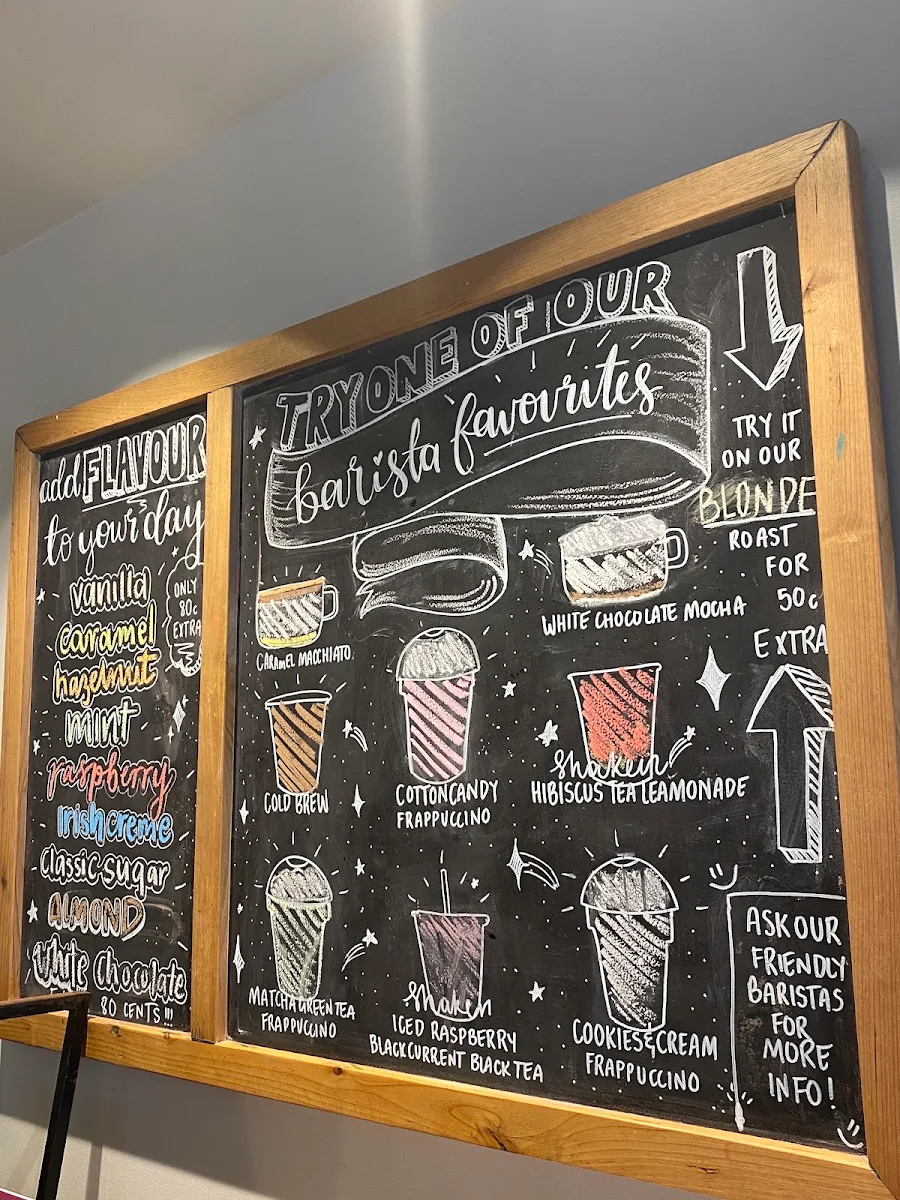 add FLAVOUR
to your day
vanilla
caramel
hazelnut
mint
raspberry
Irish creme
classic sugar
ALMOND
White Chocolate
80 CENTS !!!
ONLY
80c
EXTRA
TRY ONE OF OUR
barista favourites
CARAMEL MACCHIATO
WHITE CHOCOLATE MOCHA
COLD BREW
COTTON CANDY
FRAPPUCCINO
Shaken
HIBISCUS TEA LEAMONADE
MATCHA GREEN TEA
FRAPPUCCINO
Shaken
ICED RASPBERRY
BLACKCURRENT BLACK TEA
COOKIES & CREAM
FRAPPUCCINO
TRY IT
ON OUR
BLONDE
ROAST
FOR
50c
EXTRA
ASK OUR
FRIENDLY
BARISTAS
FOR
MORE
INFO!